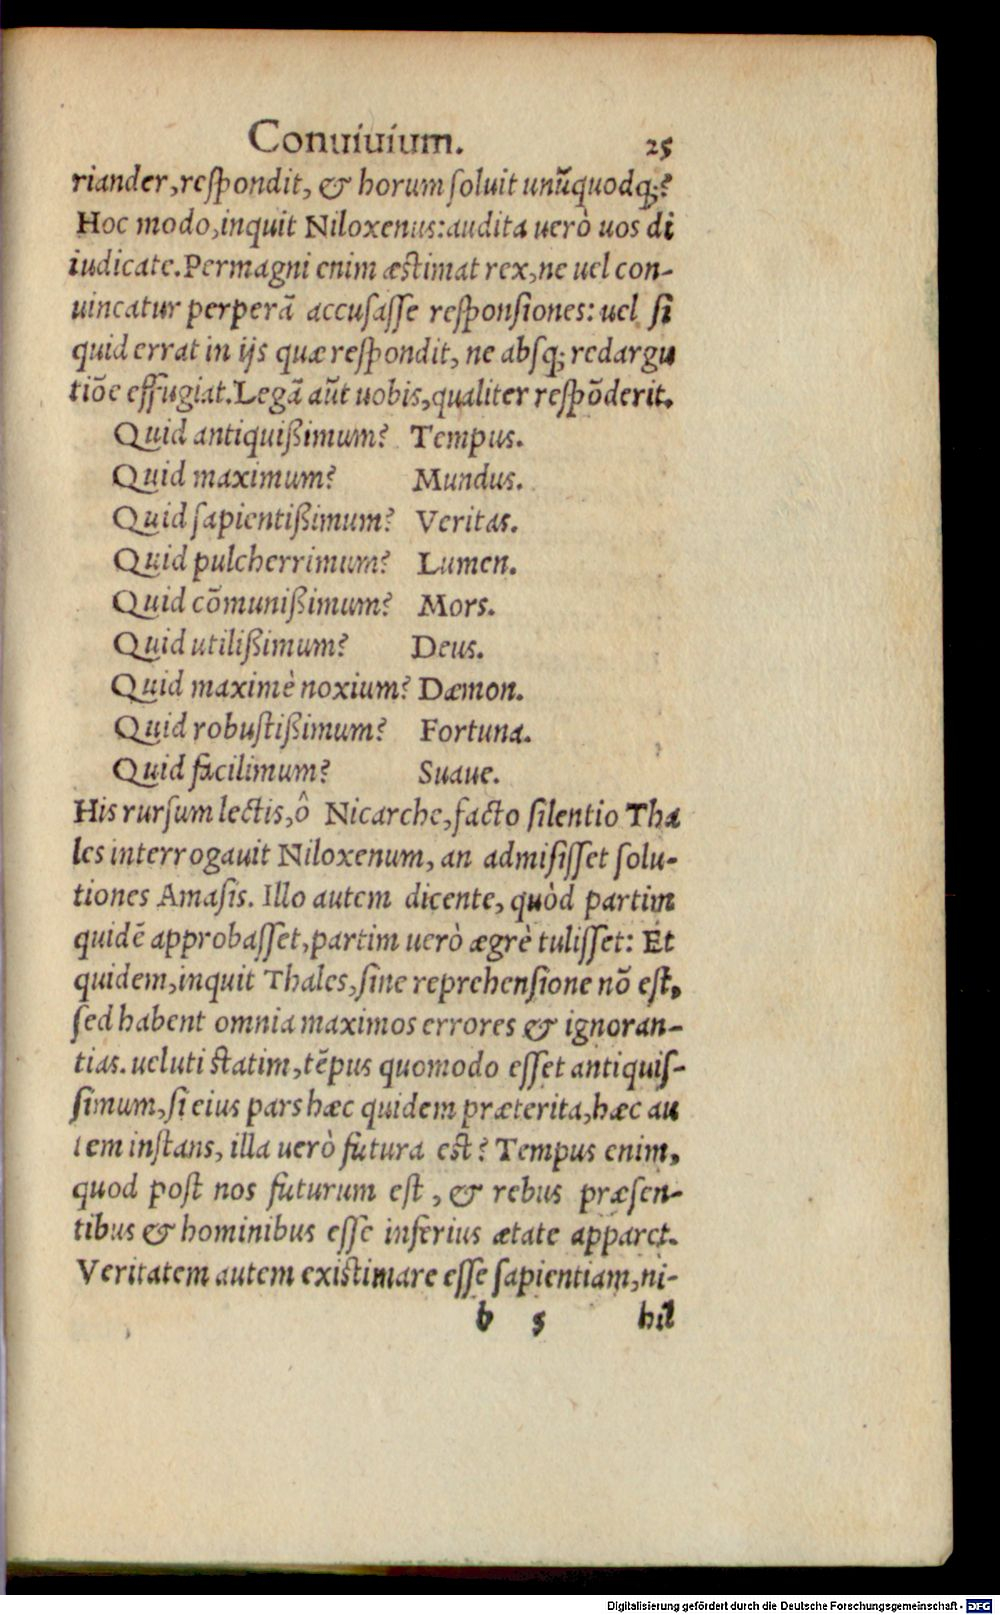 Conuiuium. 25
riander,respondit, & horum soluit unũquodq;?
Hoc modo,inquit Niloxenus:audita uerò uos di
iudicate.Permagni enim æstimat rex,ne uel con-
uincatur perperã accusasse responsiones: uel si
quid errat in ijs quæ respondit, ne absq; redargu
tiõe effugiat.Legã aũt uobis,qualiter respõderit.
Quid antiquißimum? Tempus.
Quid maximum? Mundus.
Quid sapientißimum? Veritas.
Quid pulcherrimum? Lumen.
Quid cõmunißimum? Mors.
Quid utilißimum? Deus.
Quid maximè noxium? Dæmon.
Quid robustißimum? Fortuna.
Quid facilimum? Suaue.
His rursum lectis,ô Nicarche,facto silentio Tha
les interrogauit Niloxenum, an admisisset solu-
tiones Amasis. Illo autem dicente, quòd partim
quidẽ approbasset,partim uerò ægrè tulisset: Et
quidem,inquit Thales,sine reprehensione nõ est,
sed habent omnia maximos errores & ignoran-
tias. ueluti statim,tẽpus quomodo esset antiquis-
simum,si eius pars hæc quidem præterita,hæc au
tem instans, illa uerò futura est? Tempus enim,
quod post nos futurum est, & rebus præsen-
tibus & hominibus esse inferius ætate apparet.
Veritatem autem existimare esse sapientiam,ni-
b 5 hil
Digitalisierung gefördert durch die Deutsche Forschungsgemeinschaft - DFG